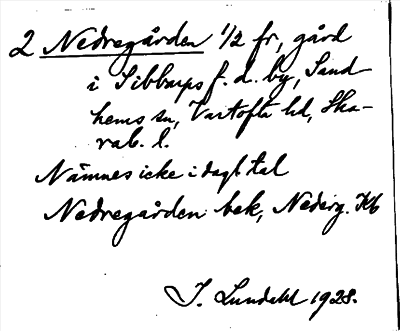 2 Nedregården 1/2 fr, gård
i Sibbarps f. d. by, Sand-
hems sn, Vartofta hd, Ska-
rab. l.
Nämnes icke i dagl tal
Nedregården: bek, Nederg. Kb
I. Lundahl 1928.